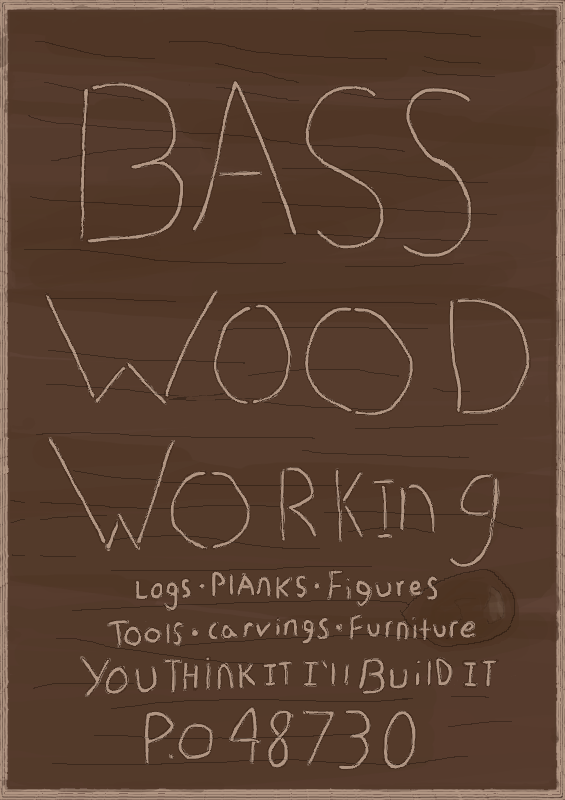 BASS
WOOD
WORKIng
Logs·PlANKS·Figures
Tools·carvings·Furniture
YouTHinK IT I'll BuilD IT
P.O 48730